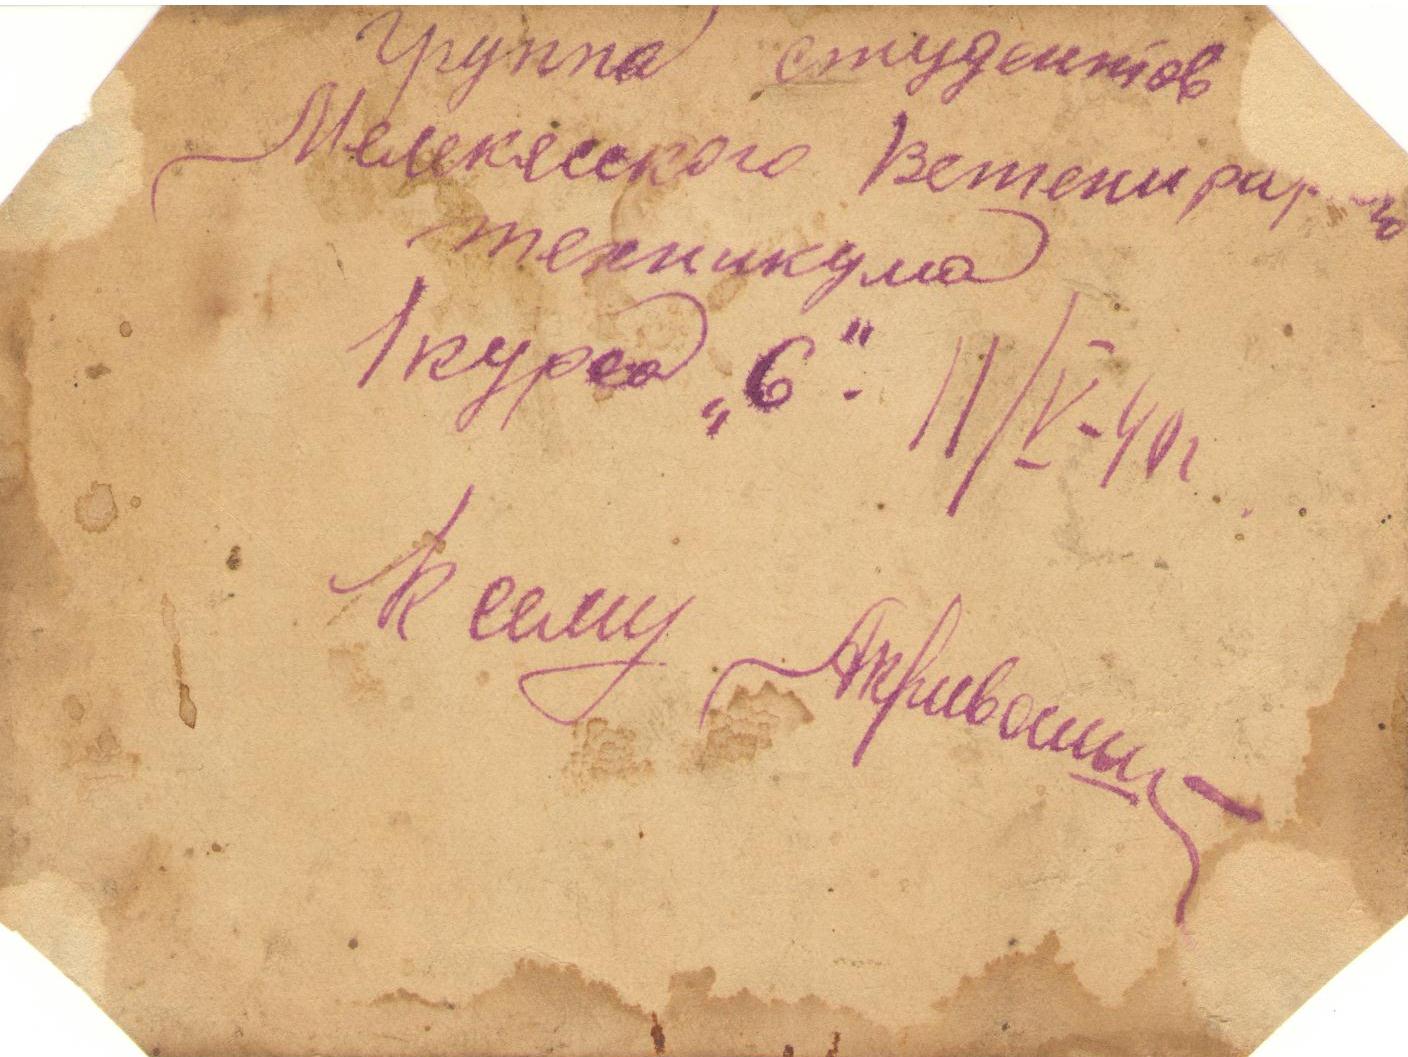 Группа студентов
Мелекесского Ветенирарного
техникума
1 курса „б".
11/V-40г
К сему